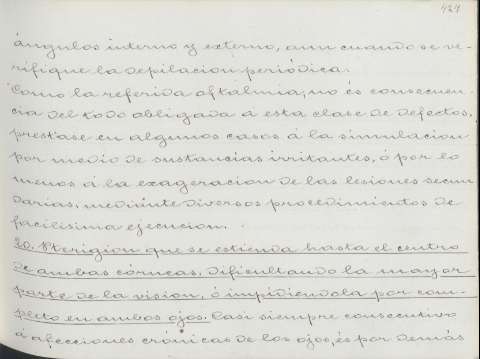 427
ángulos interno y externo, aun cuando se ve-
rifique la depilacion periódica.
Como la referida oftalmia, no és consecuen-
cia del todo obligada á esta clase de defectos,
prestase en algunos casos á la simulacion
por medio de sustancias irritantes, ó por lo
menos á la exageracion de las lesiones secun
darias, mediante diversos procedimientos de
facilisima ejecucion.
20. Pterigion que se estienda hasta el centro
de ambas córneas, dificultando la mayor
parte de la vision, ó impidiendola por com-
pleto en ambos ojos. Casi siempre consecutivo
á afecciones crónicas de los ojos, és por demás